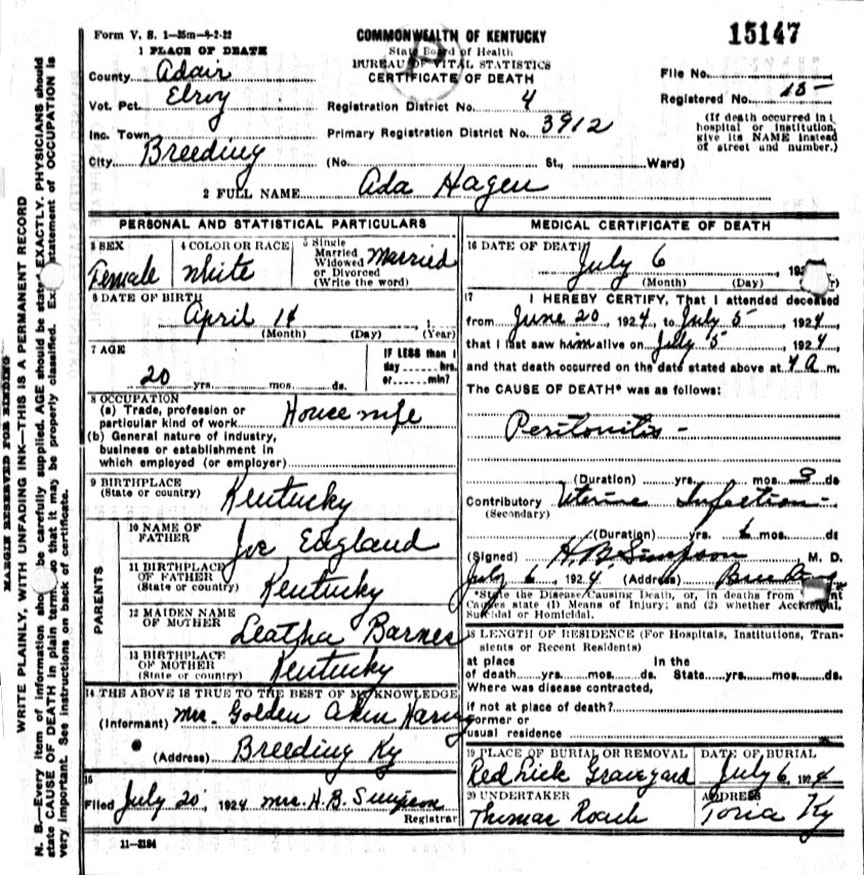 Form V. S. 1—35m—9-2-22
COMMONWEALTH OF KENTUCKY
State Board of Health
BUREAU OF VITAL STATISTICS
CERTIFICATE OF DEATH
15147
1 PLACE OF DEATH
County Adair
Vot. Pct. Elroy
Inc. Town
City Breeding
Registration District No. 4
Primary Registration District No. 3912
(No. St., Ward)
File No.
Registered No. 15-
(If death occurred in
hospital or institution,
give its NAME instead
of street and number.)
2 FULL NAME Ada Hagen
PERSONAL AND STATISTICAL PARTICULARS
3 SEX
Female
4 COLOR OR RACE
White
5 Single
Married
Widowed
or Divorced
(Write the word)
Married
6 DATE OF BIRTH
April 14
(Month) (Day) (Year)
7 AGE
20 yrs. mos. ds.
IF LESS than 1
day hrs.
or min?
8 OCCUPATION
(a) Trade, profession or
particular kind of work Housewife
(b) General nature of industry,
business or establishment in
which employed (or employer)
9 BIRTHPLACE
(State or country)
Kentucky
PARENTS
10 NAME OF
FATHER
Joe England
11 BIRTHPLACE
OF FATHER
(State or country)
Kentucky
12 MAIDEN NAME
OF MOTHER
Leatha Barnes
13 BIRTHPLACE
OF MOTHER
(State or country)
Kentucky
14 THE ABOVE IS TRUE TO THE BEST OF MY KNOWLEDGE
(Informant) Mrs. Golden
(Address) Breeding Ky
15
Filed July 20, 1924 Mrs. H. B. Simpson
Registrar
11—3184
MEDICAL CERTIFICATE OF DEATH
16 DATE OF DEATH
July 6, 192
(Month) (Day)
17 I HEREBY CERTIFY, That I attended deceased
from June 20, 1924, to July 5, 1924,
that I last saw him alive on July 5, 1924
and that death occurred on the date stated above at 4 a m.
The CAUSE OF DEATH* was as follows:
Peritonitis -
(Duration) yrs. mos. 3 ds
Contributory Uterine Infection -
(Secondary)
(Duration) yrs. 6 mos. ds
(Signed) H. B. Simpson M. D.
July 6, 1924 (Address) Breeding
*State the Disease Causing Death, or, in deaths from
Causes state (1) Means of Injury; and (2) whether Accidental,
Suicidal or Homicidal.
18 LENGTH OF RESIDENCE (For Hospitals, Institutions, Tran-
sients or Recent Residents)
at place In the
of death yrs. mos. ds. State yrs. mos. ds.
Where was disease contracted,
if not at place of death?
Former or
usual residence
19 PLACE OF BURIAL OR REMOVAL
Red Lick Graveyard
DATE OF BURIAL
July 6, 1924
20 UNDERTAKER
Thomas Roach
ADDRESS
Toria Ky
MARGIN RESERVED FOR BINDING
WRITE PLAINLY, WITH UNFADING INK—THIS IS A PERMANENT RECORD
N. B.—Every item of information should be carefully supplied. AGE should be stated EXACTLY. PHYSICIANS should
state CAUSE OF DEATH in plain terms, so that it may be properly classified. Exact statement of OCCUPATION is
very important. See instructions on back of certificate.